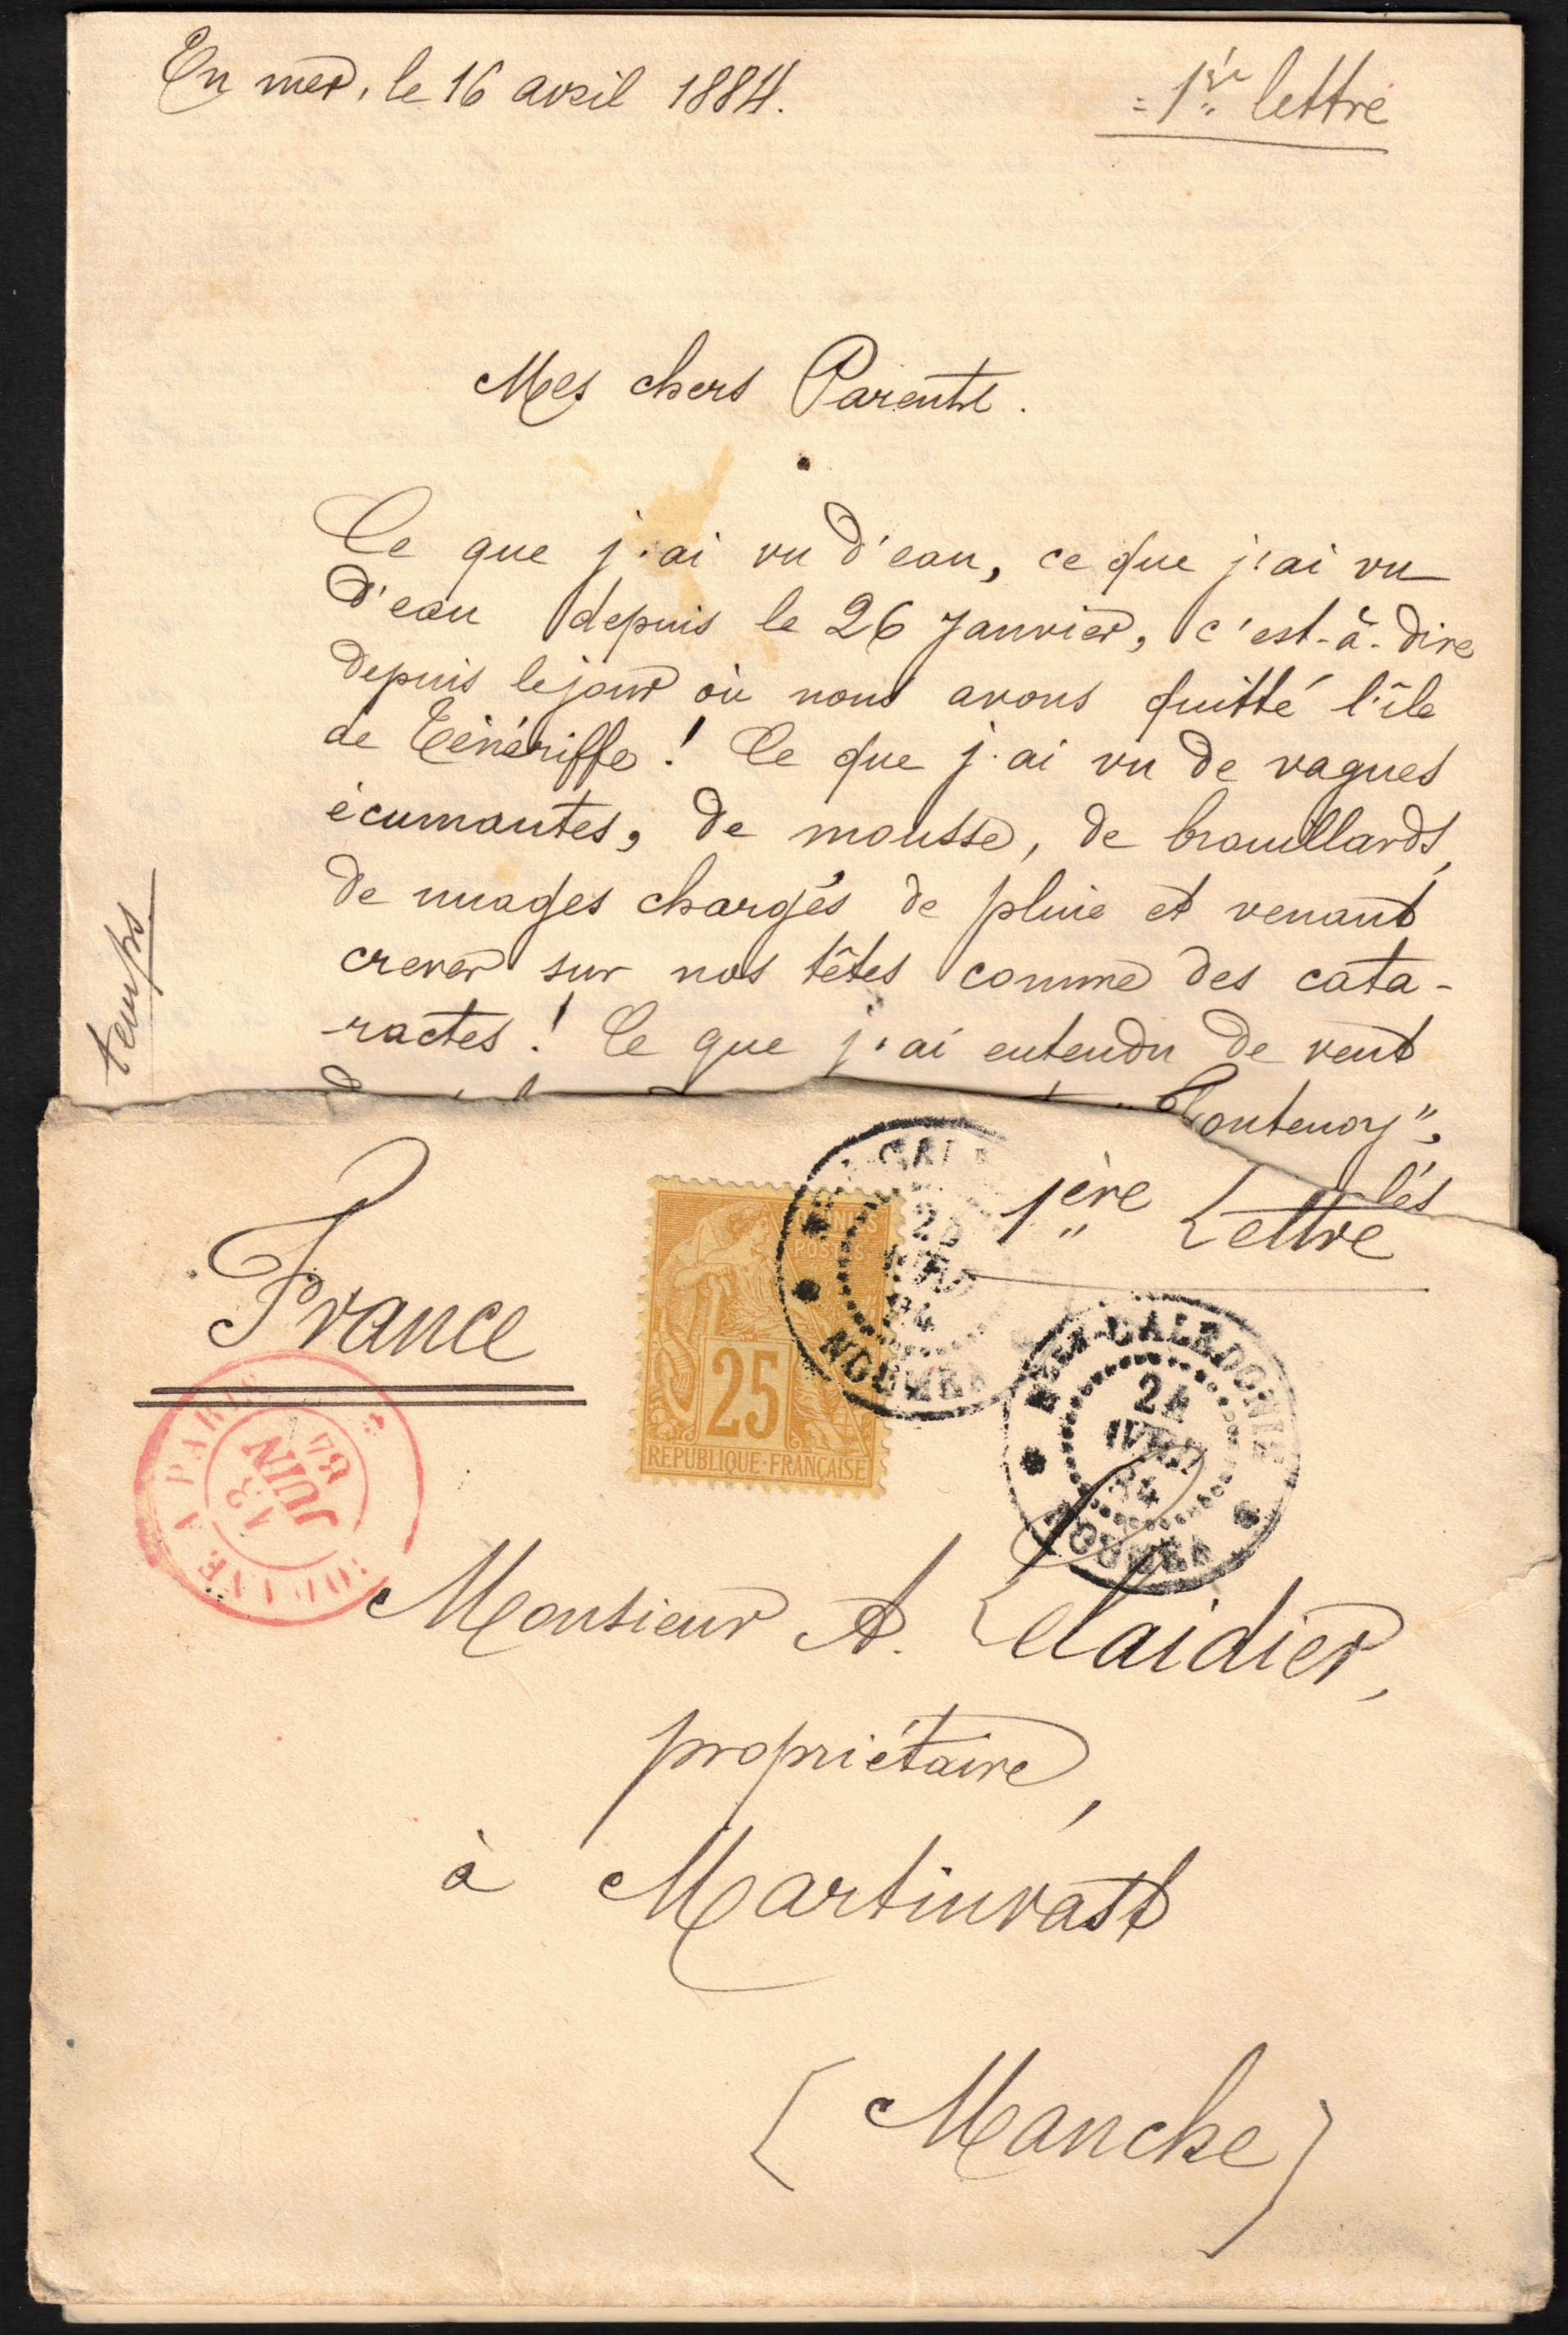 En mer, le 16 avril 1884.
1ère lettre
Mes chers Parents.
Ce que j'ai vu d'eau, ce que j'ai vu
d'eau depuis le 26 Janvier, c'est-à-dire
depuis le jour où nous avons quitté l'île
de Ténériffe ! Ce que j'ai vu de vagues
écumantes, de mousse, de brouillards,
de nuages chargés de pluie et venant
crever sur nos têtes comme des cata-
-ractes ! Ce que j'ai entendu de vent
"Fontenoy",
lés
temps
1ère Lettre
France
COLONIES
POSTES
25
REPUBLIQUE FRANÇAISE
AVRIL
84
NOUMEA
Nelle CALEDONIE
24
AVRIL
84
NOUMEA
A PARIS
13
JUIN
84
Monsieur A. Lelaidier,
propriétaire,
à Martinvast
(Manche)